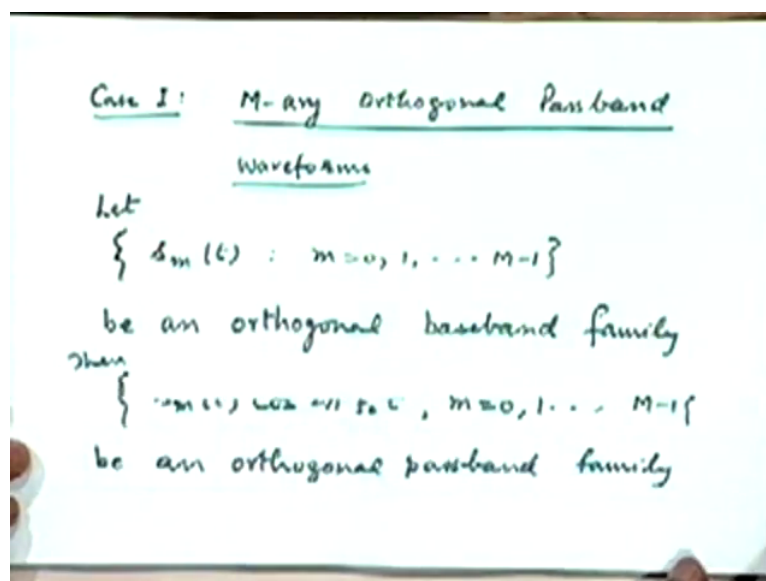 Case I: M-ary Orthogonal Passband
Waveforms
Let
{ sm(t) : m=0, 1, ... M-1}
be an orthogonal baseband family
Then
{ , m=0, 1 ... M-1{
be an orthogonal passband family